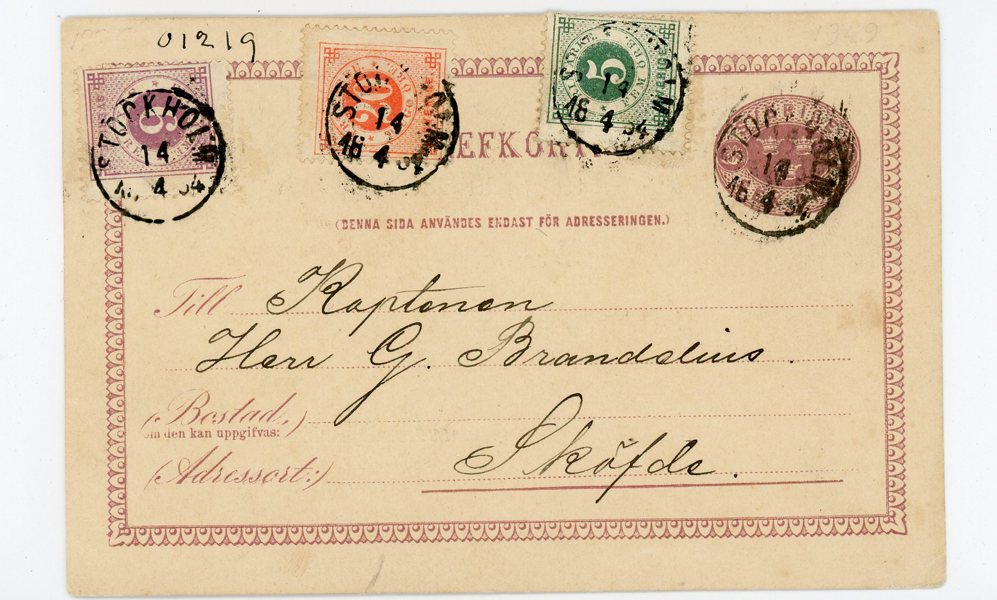 01219
STOCKHOLM
14
4 84
20
STOCKHOLM
14
16 4 84
5
STOCKHOLM
14
16 4 84
STOCKHOLM
14
16 4 84
EFKORT
(DENNA SIDA ANVÄNDES ENDAST FÖR ADRESSERINGEN.)
Till Kaptenen
Herr G. Brandelius.
(Bostad,)
om den kan uppgifvas:
(Adressort:) Sköfde.